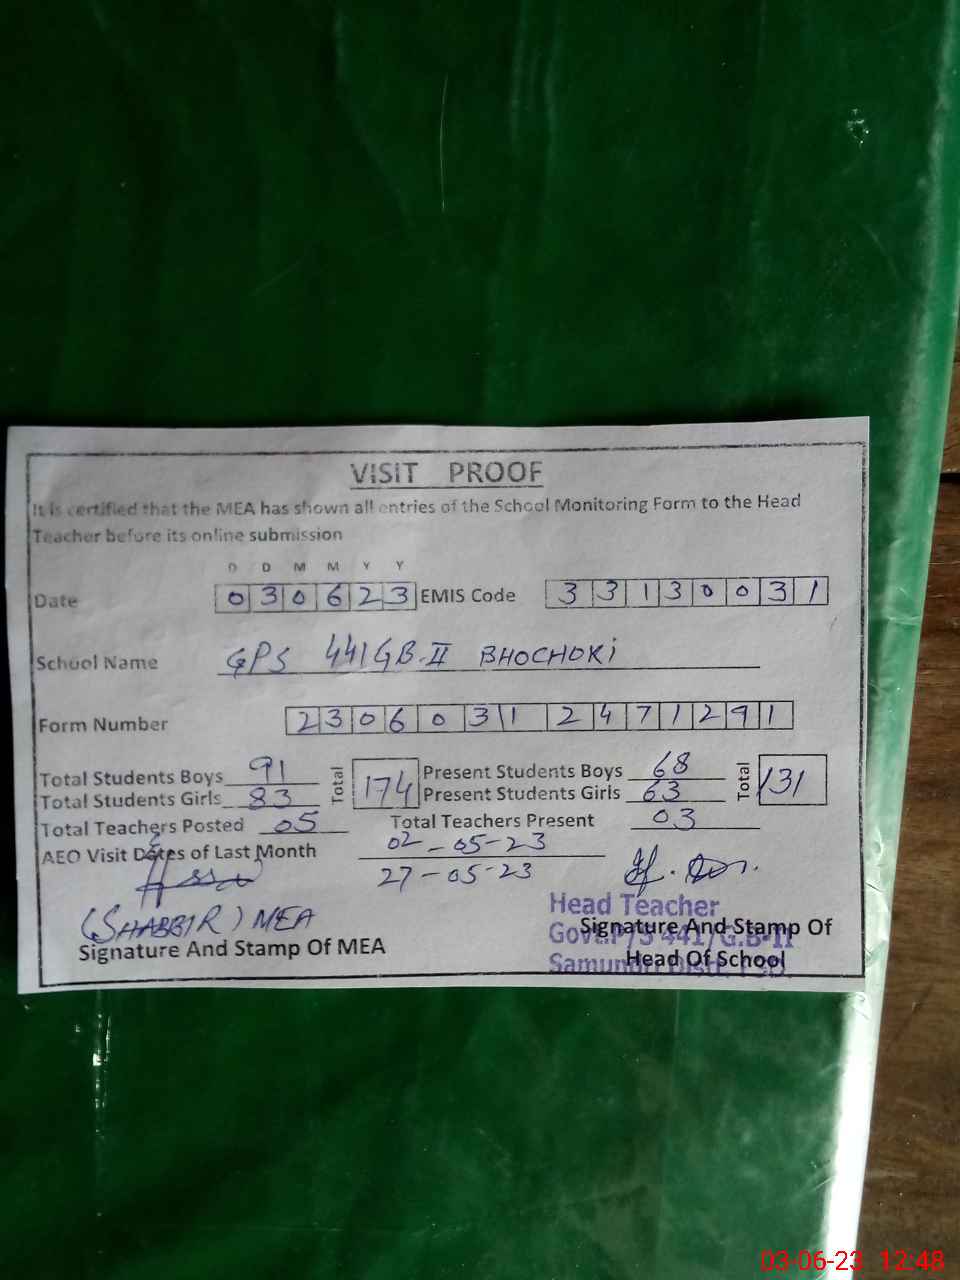 VISIT PROOF
It is certified that the MEA has shown all entries of the School Monitoring Form to the Head
Teacher before its online submission
D D M M Y Y
Date 030623 EMIS Code 33130031
School Name GPS 441GB-II BHOCHOKI
Form Number 2306031 2471291
Total Students Boys 91 Total 174 Present Students Boys 68 Total 131
Total Students Girls 83 Present Students Girls 63
Total Teachers Posted 05 Total Teachers Present 03
AEO Visit Dates of Last Month 02-05-23
27-05-23
(SHABBIR) MEA
Signature And Stamp Of MEA
Head Teacher
Signature And Stamp Of
Govt.P/S 441/G.B-II
Head Of School
03-06-23 12:48